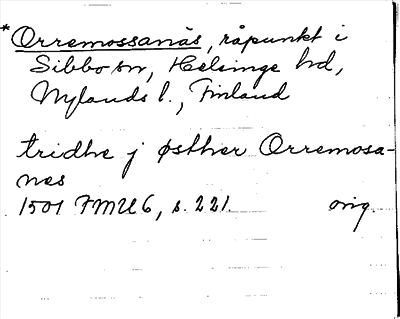 *Orremossanäs, råpunkt i
Sibbo sn, Helsinge hd,
Nylands l., Finland
tridhe j østher Orremosa-
nes
1501 FMU 6, s. 221. orig.